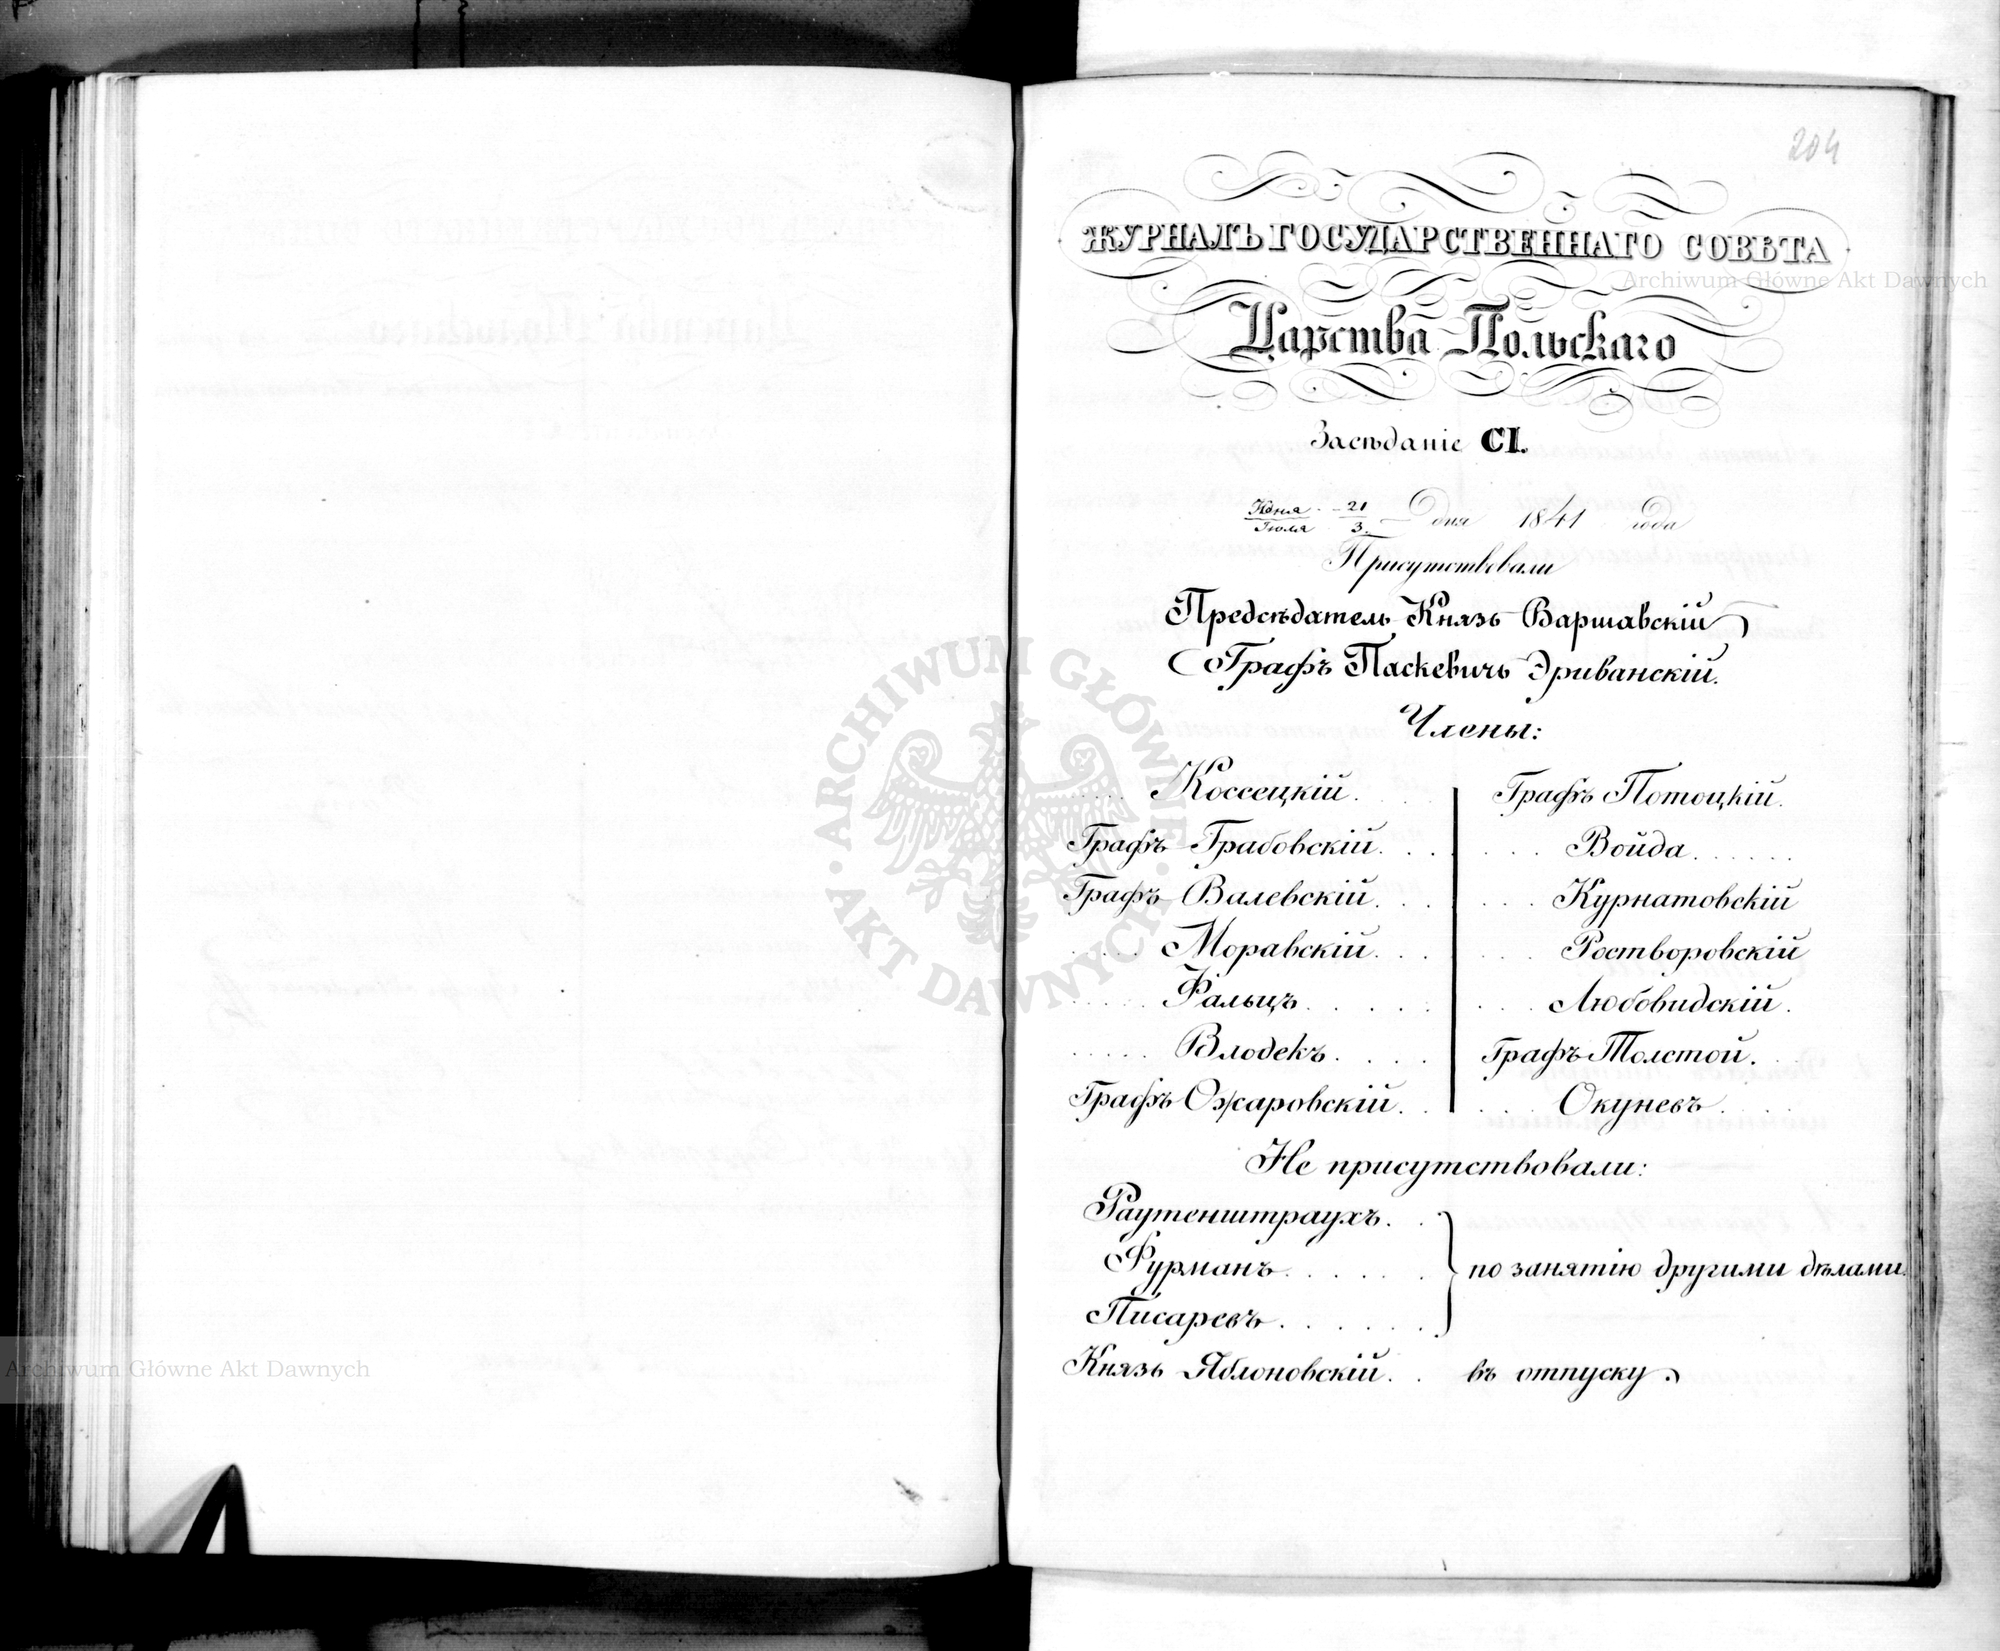 204
ЖУРНАЛЪ ГОСУДАРСТВЕННАГО СОВѢТА
Царства Польскаго
Засѣданіе CI.
Іюня 21 / Іюля 3. дня 1841 года
Присутствовали
Предсѣдатель Князь Варшавскій
Графъ Паскевичь Эриванскій.
Члены:
Коссецкій. Графъ Потоцкій.
Графъ Грабовскій. Войда
Графъ Валевскій. Курнатовскій
Моравскій. Ростворовскій
Фальцъ. Любовидскій.
Влодекъ. Графъ Толстой.
Графъ Ожаровскій. Окуневъ
Не присутствовали:
Раутенштраухъ.
Фурманъ. по занятію другими дѣлами.
Писаревъ
Князь Яблоновскій. въ отпуску
Archiwum Główne Akt Dawnych
ARCHIWUM GŁÓWNE AKT DAWNYCH
Archiwum Główne Akt Dawnych